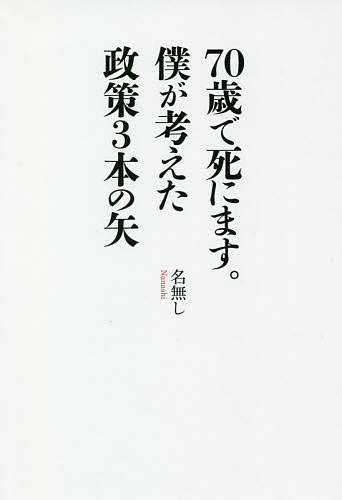 70歳で死にます。
僕が考えた
政策3本の矢
名無し
Nanashi